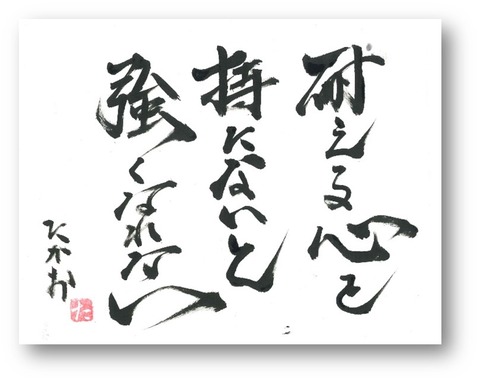 耐える心を
持たないと
強くなれない
たかお
た